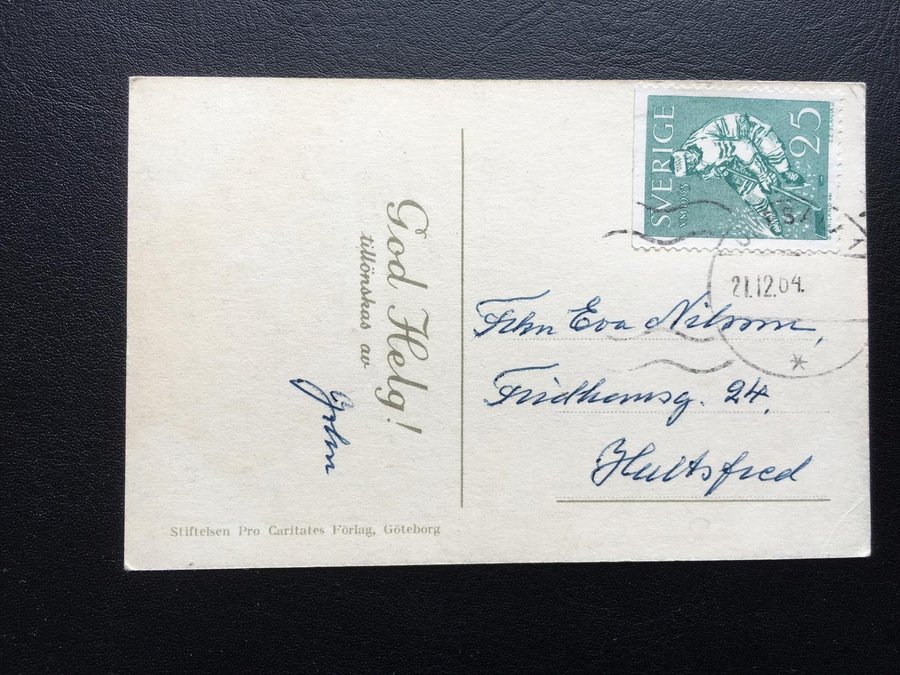 God Helg!
tillönskas av
John
Stiftelsen Pro Caritates Förlag, Göteborg
SVERIGE
25
21.12.64.
Frkn Eva Nilsson,
Fridhemsg. 24,
Hultsfred